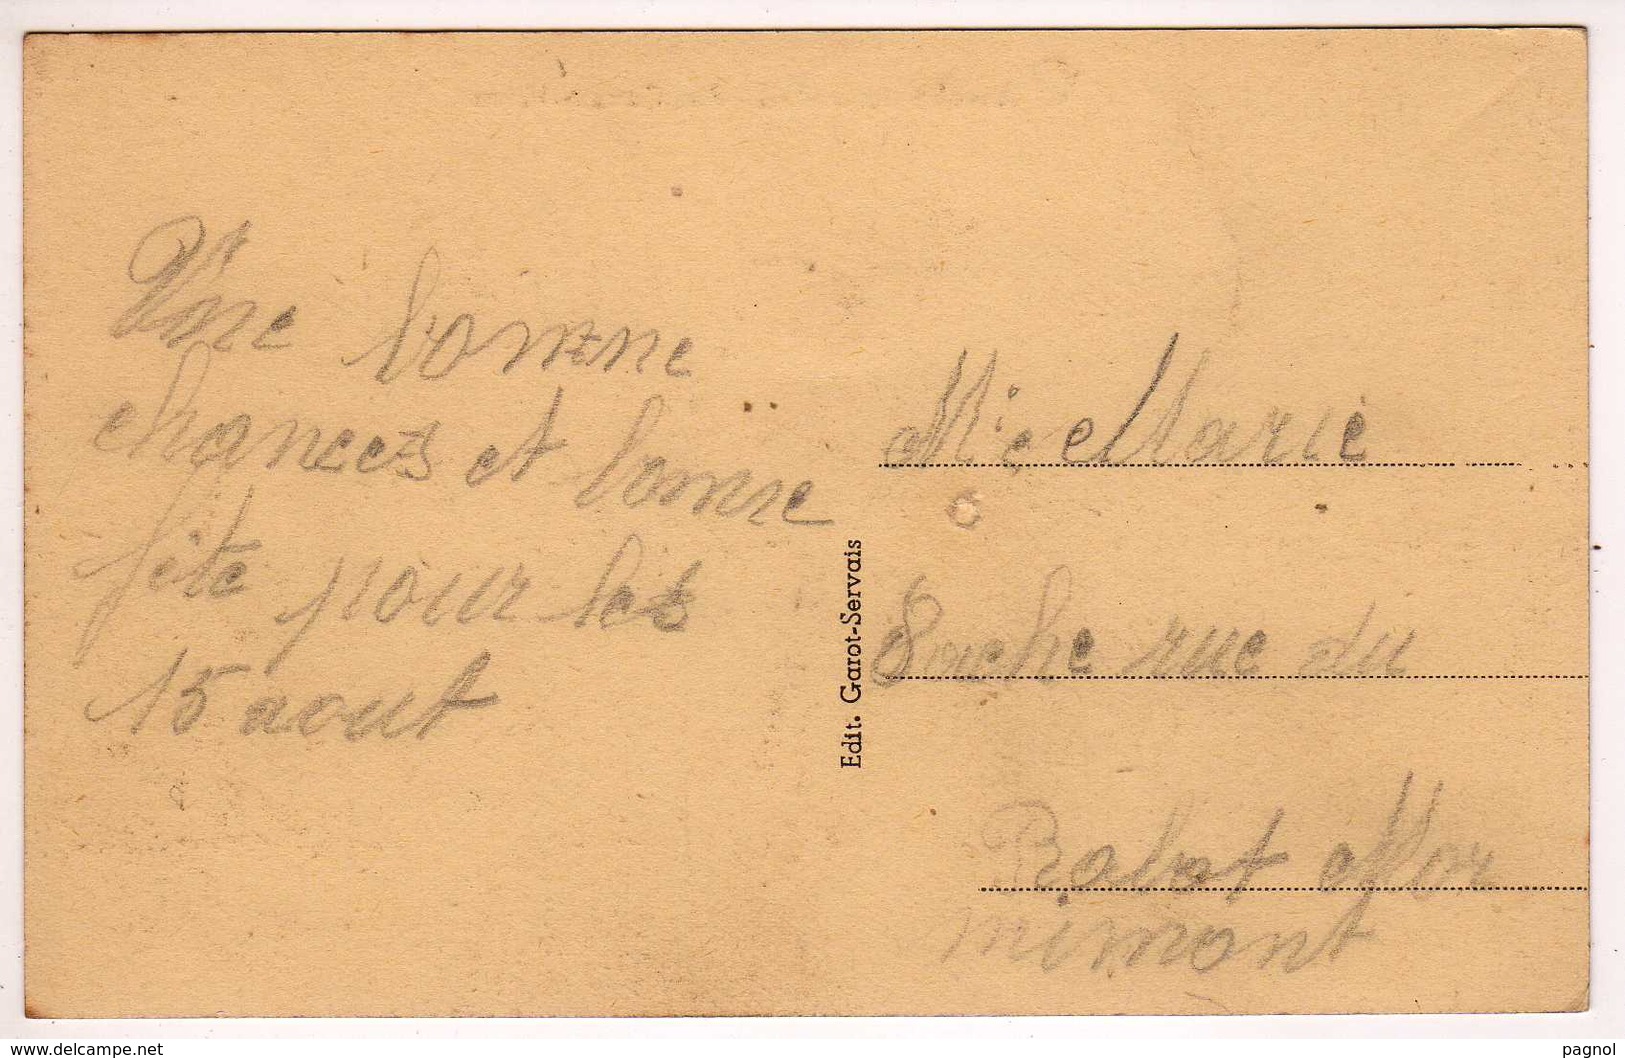 Une bonne
chances et bonne
fête pour les
15 aout
Edit. Garot-Servais
Mie Marie
Sache rue du
Rabot Mor
mimont
www.delcampe.net
pagnol